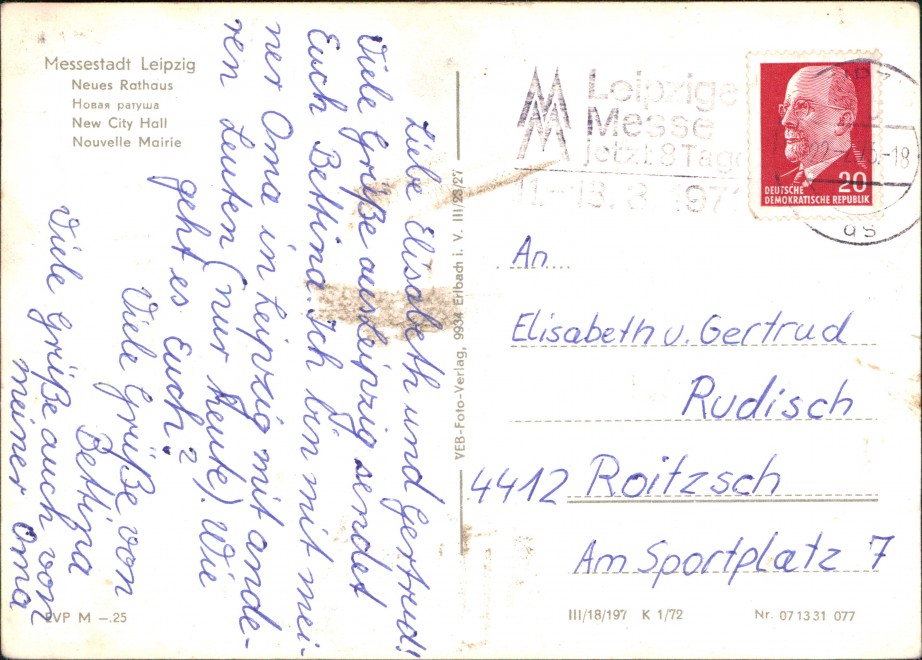 Messestadt Leipzig
Neues Rathaus
Новая ратуша
New City Hall
Nouvelle Mairie
Liebe Elisabeth und Gertrud!
Viele Grüße aus Leipzig sendet
Euch Bettina. Ich bin mit mei-
ner Oma in Leipzig mit ande-
ren Leuten (nur heute). Wie
geht es Euch?
Viele Grüße von
Bettina
Viele Grüße auch von
meiner Oma
EVP M –.25
VEB-Foto-Verlag, 9934 Erlbach i. V. III/23/27
Leipziger
Messe
jetzt 8 Tage
11.–18. 3. 197
DEUTSCHE
DEMOKRATISCHE REPUBLIK
20
-18
An
Elisabeth u. Gertrud
Rudisch
4412 Roitzsch
Am Sportplatz 7
III/18/197 K 1/72
Nr. 07 13 31 077